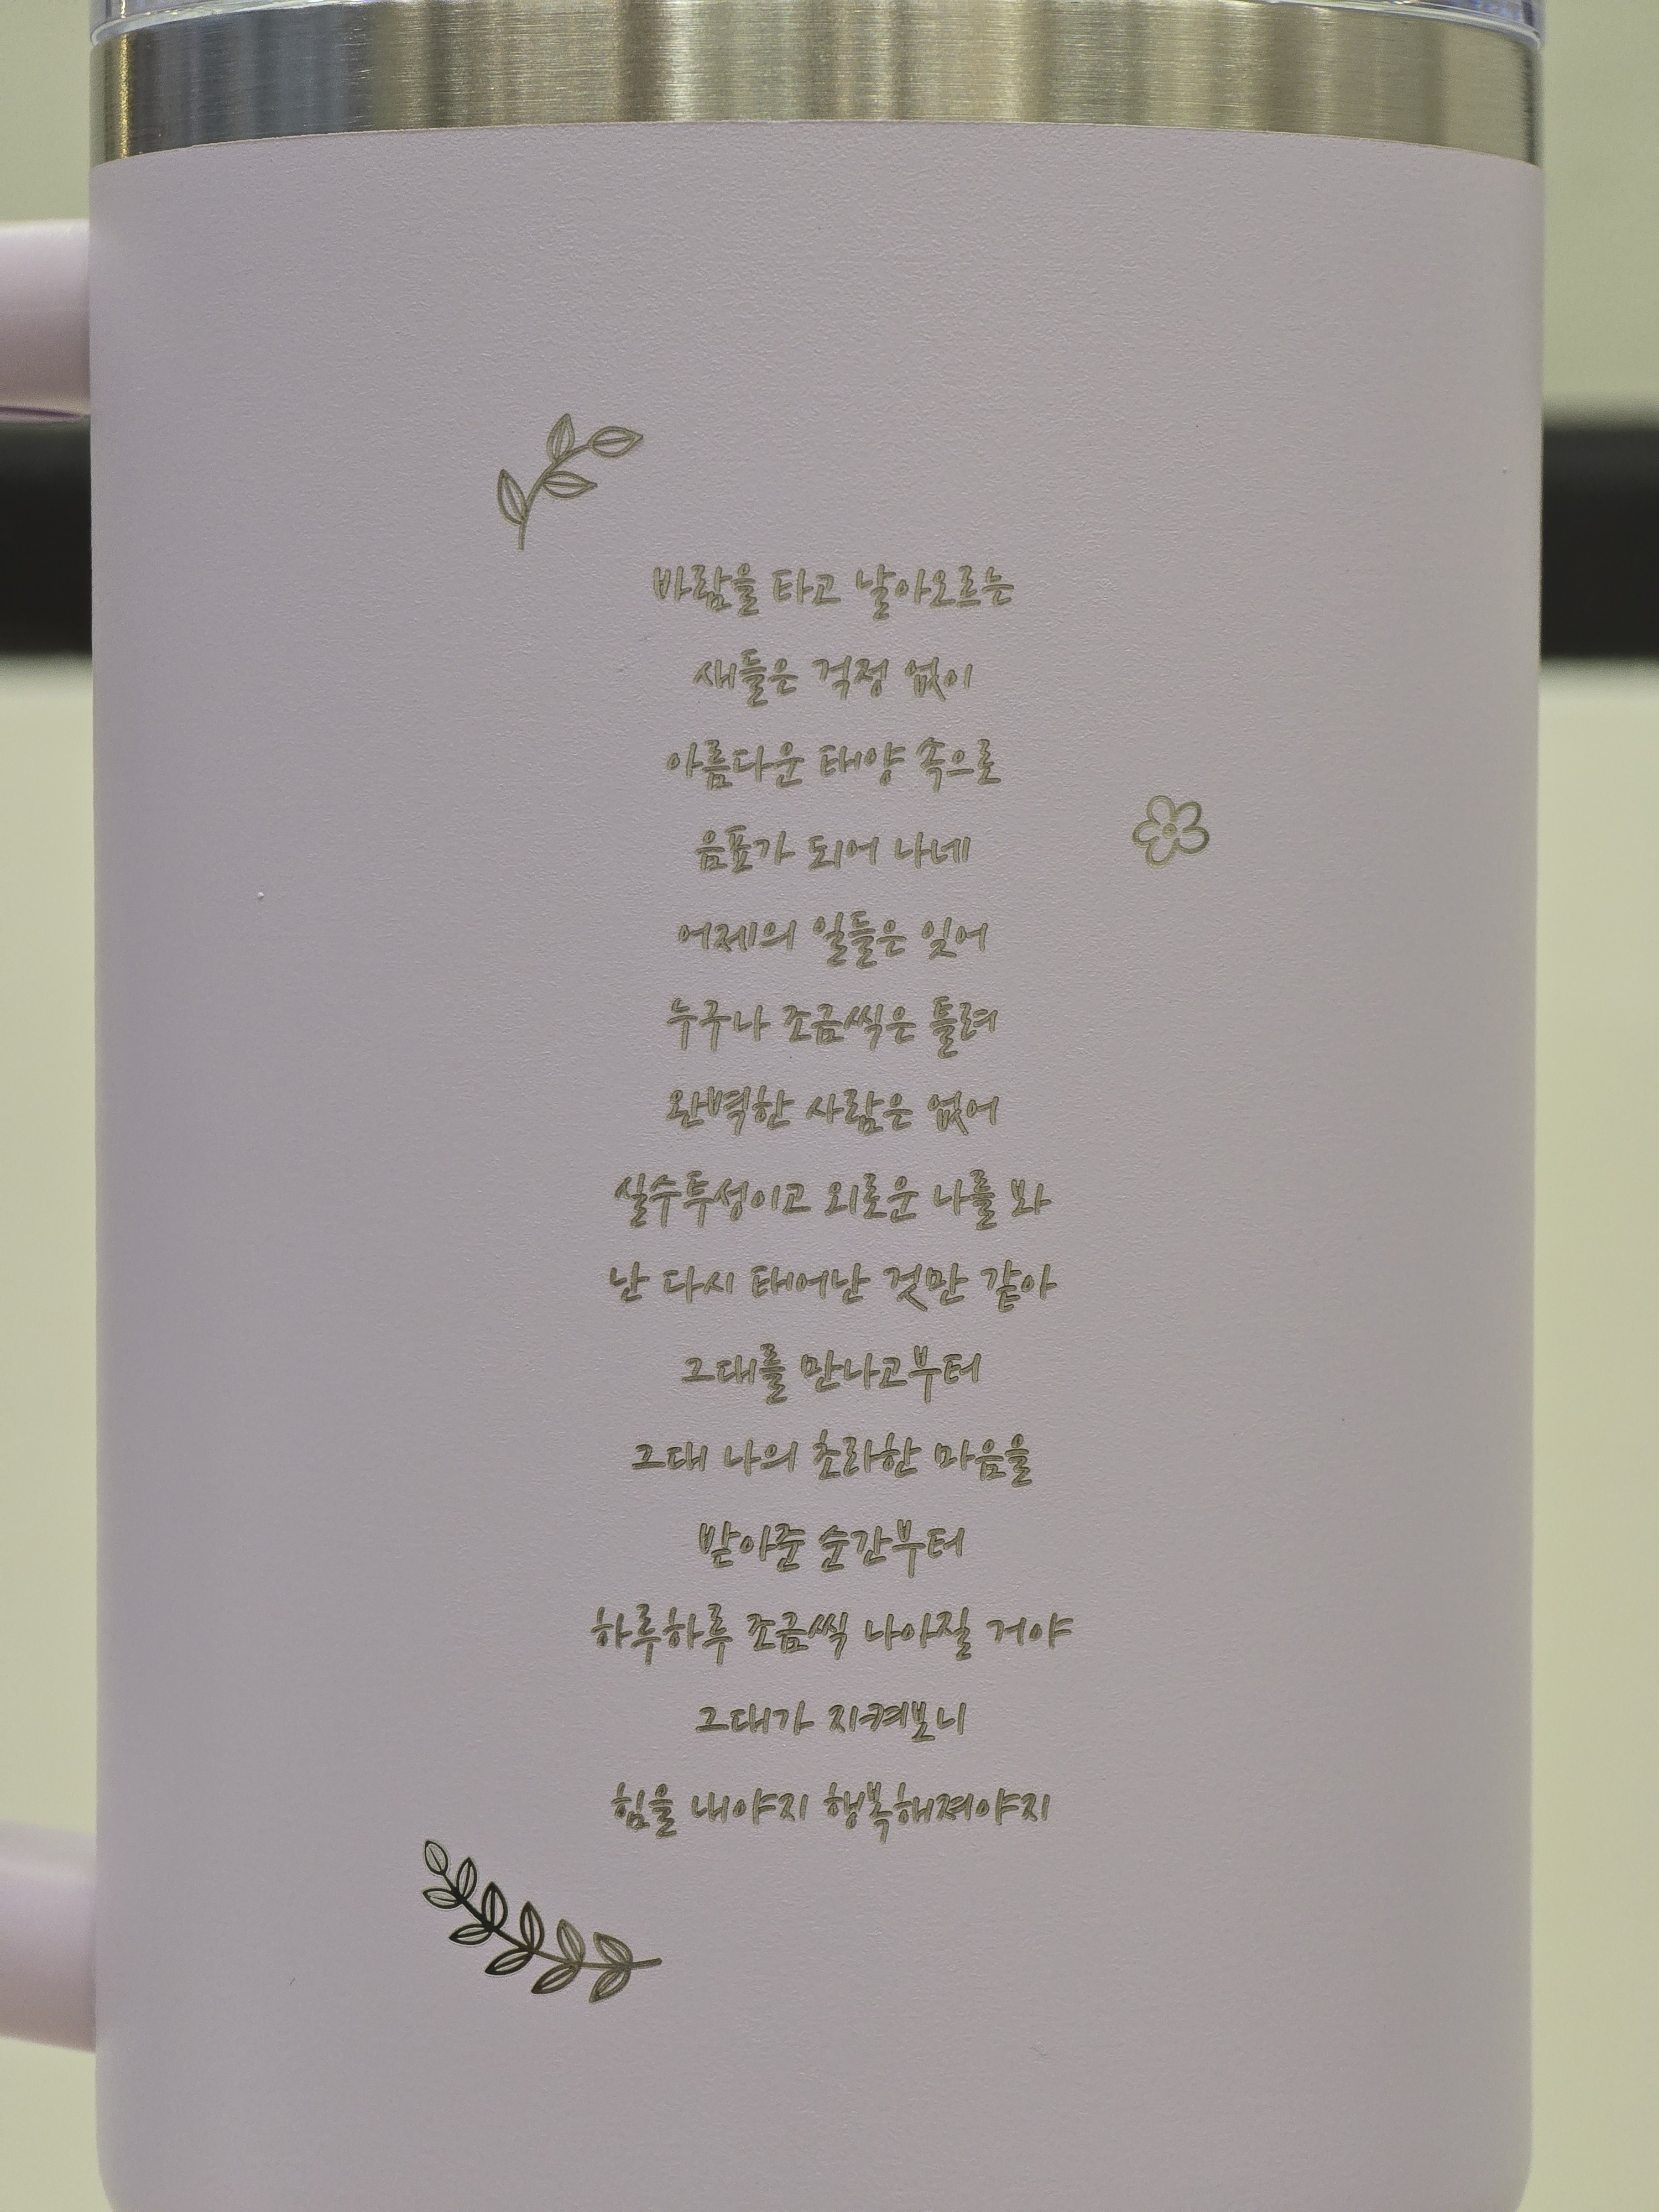 바람을 타고 날아오르는
새들은 걱정 없이
아름다운 태양 속으로
음표가 되어 나네
어제의 일들은 잊어
누구나 조금씩은 틀려
완벽한 사람은 없어
실수투성이고 외로운 나를 봐
난 다시 태어난 것만 같아
그대를 만나고부터
그대 나의 초라한 마음을
받아준 순간부터
하루하루 조금씩 나아질 거야
그대가 지켜보니
힘을 내야지 행복해져야지